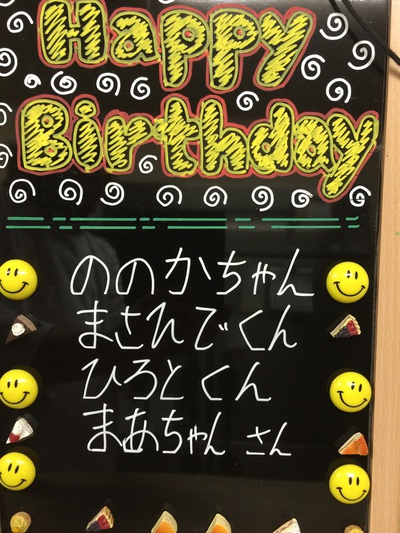 Happy
Birthday
ののかちゃん
まさひでくん
ひろとくん
まあちゃん さん